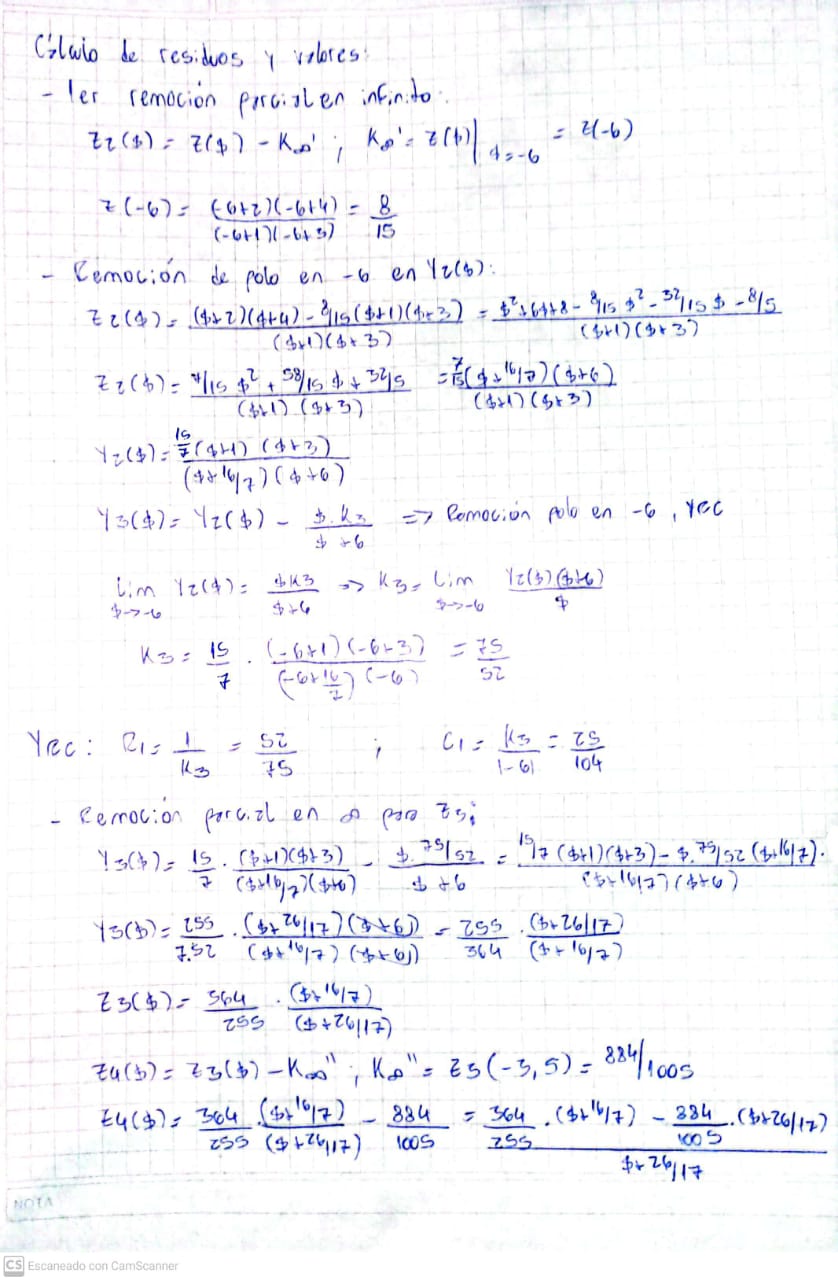 Cálculo de residuos y valores:
- 1er remoción parcial en infinito:
Z2($) = Z($) - K∞' ; K∞' = Z($)|$=-6 = Z(-6)
Z(-6) = (-6+2)(-6+4) / (-6+1)(-6+3) = 8/15
- Remoción de polo en -6 en Y2($):
Z2($) = ($+2)($+4) - 8/15 ($+1)($+3) / ($+1)($+3) = $²+6$+8 - 8/15 $² - 32/15 $ - 8/5 / ($+1)($+3)
Z2($) = 7/15 $² + 58/15 $ + 32/5 / ($+1)($+3) = 7/15 ($+16/7)($+6) / ($+1)($+3)
Y2($) = 15/7 ($+1)($+3) / ($+16/7)($+6)
Y3($) = Y2($) - $.K3 / $+6 => Remoción polo en -6, YRC
Lim $->-6 Y2($) = $K3 / $+6 => K3 = Lim $->-6 Y2($)($+6) / $
K3 = 15/7 . (-6+1)(-6+3) / (-6+16/7)(-6) = 75/52
YRC: R1 = 1/K3 = 52/75 ; C1 = K3/|-6| = 25/104
- Remoción parcial en ∞ para Z3:
Y3($) = 15/7 . ($+1)($+3) / ($+16/7)($+6) - $.75/52 / $+6 = 15/7 ($+1)($+3) - $.75/52 ($+16/7). / ($+16/7)($+6)
Y3($) = 255/7.52 . ($+26/17)($+6) / ($+16/7)($+6) = 255/364 . ($+26/17) / ($+16/7)
Z3($) = 364/255 . ($+16/7) / ($+26/17)
Z4($) = Z3($) - K∞'' ; K∞'' = Z3(-3,5) = 884/1005
Z4($) = 364/255 . ($+16/7) / ($+26/17) - 884/1005 = 364/255 . ($+16/7) - 884/1005 . ($+26/17) / $+26/17
NOTA
CS Escaneado con CamScanner